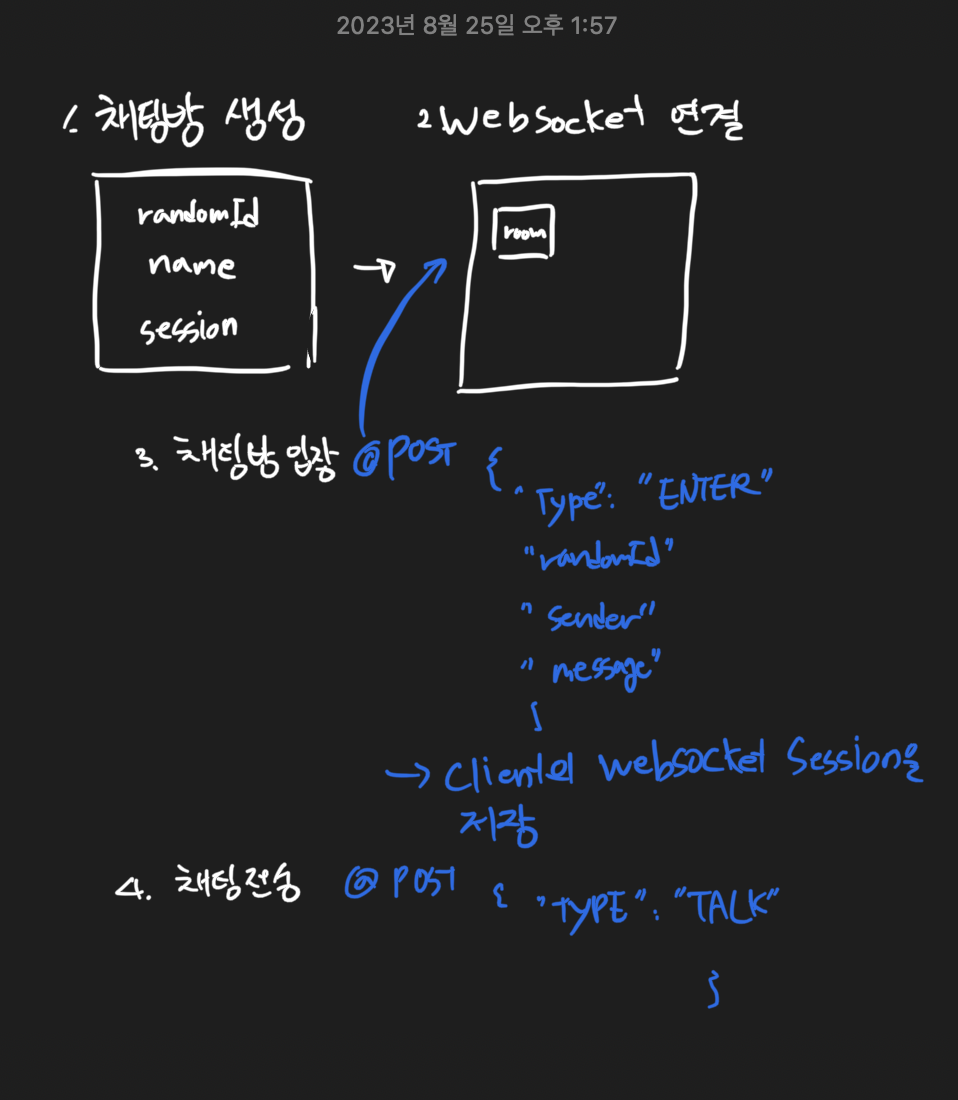 2023년 8월 25일 오후 1:57
1. 채팅방 생성
2 WebSocket 연결
randomId
name
session
→
room
3. 채팅방 입장 @POST {
"Type": "ENTER"
"randomId"
"sender"
"message"
}
→ Client의 websocket Session을
저장
4. 채팅전송 @POST { "TYPE": "TALK"
}